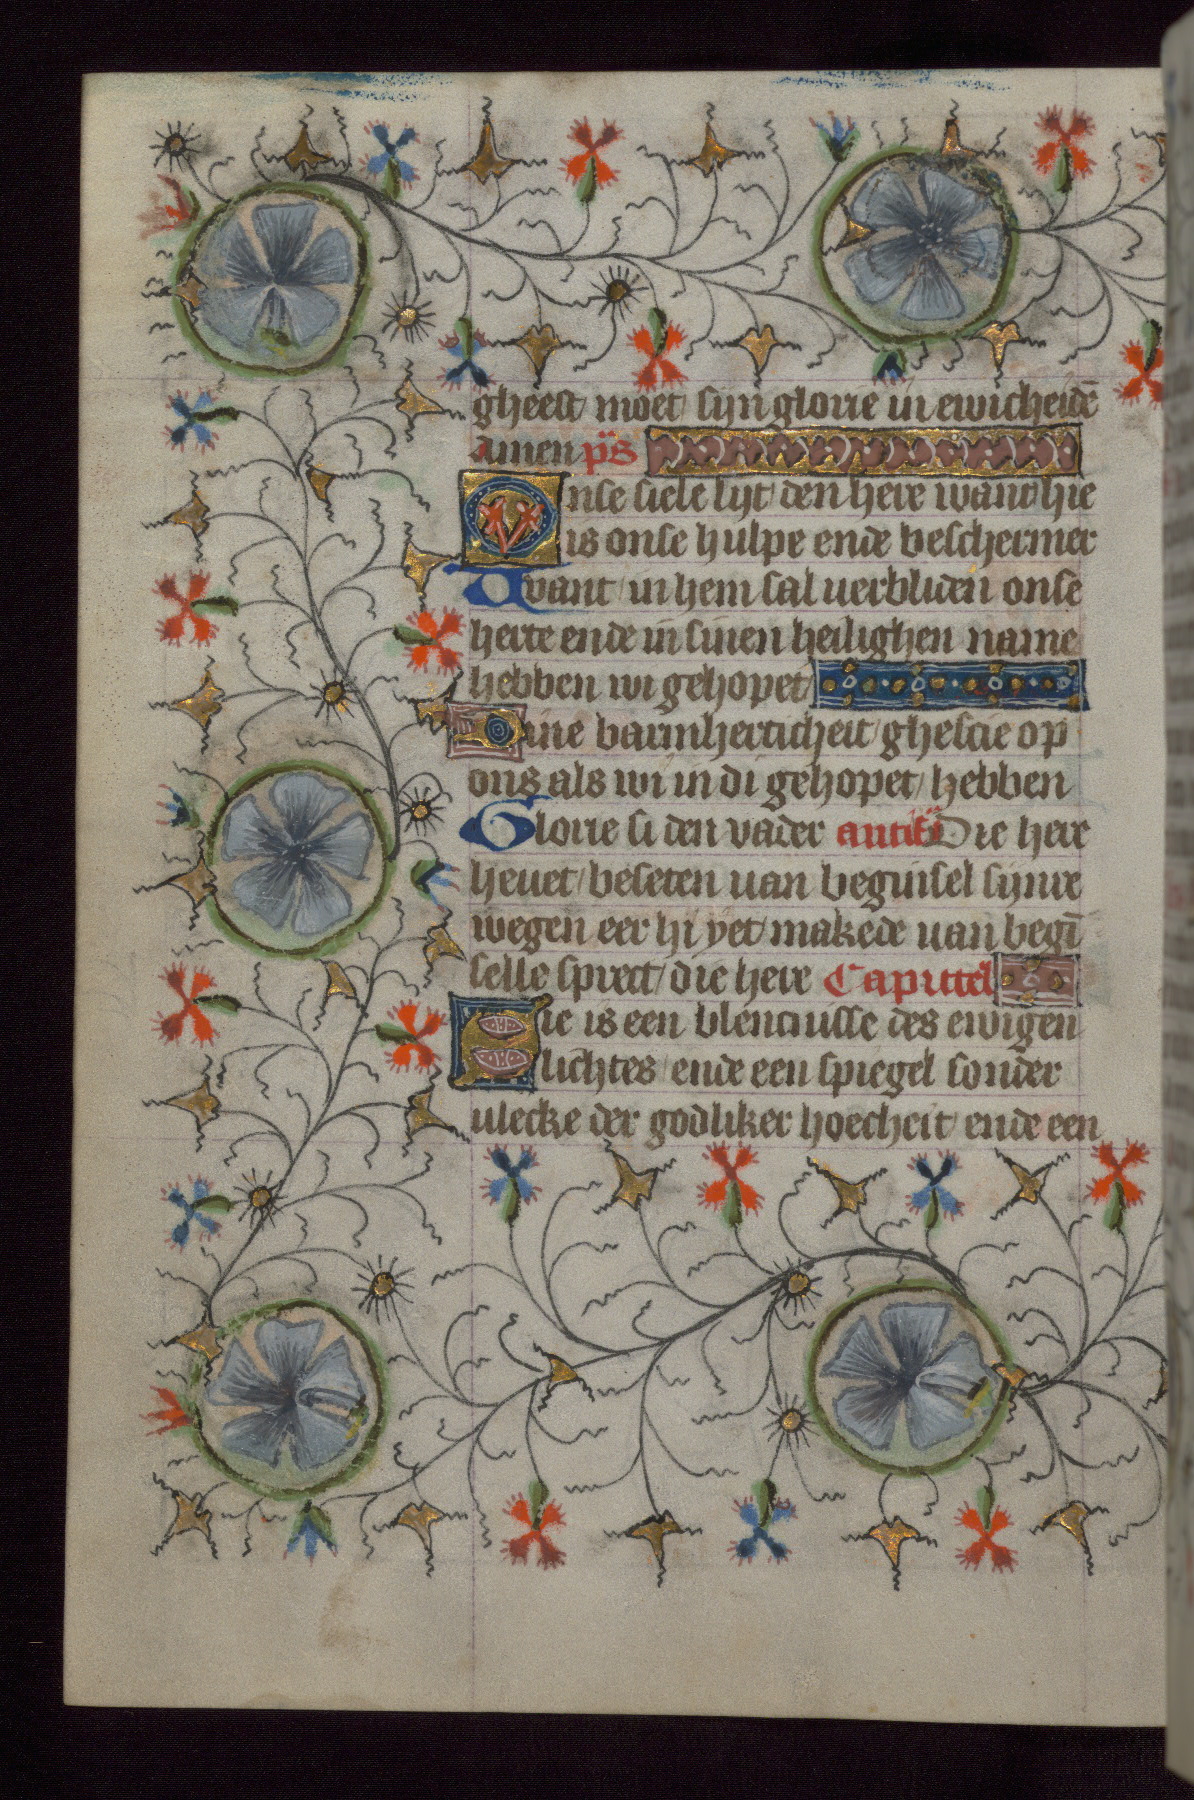 gheest moet sijn glorie in ewicheidē
Amen ps
Onse siele lijt den here want hie
is onse hulpe ende beschermer
Want in hem sal verbliden onse
herte ende in sinen heilighen name
hebben wi gehopet
Dine barmherticheit ghescie op
ons als wi in di gehopet hebben
Glorie si den vader antifē Die here
hevet beseten van beginsel sijnre
wegen eer hi yet makede van begī
selle sprect die here Capittel
Sie is een blencnisse des ewigen
lichtes ende een spiegel sonder
vlecke der godliker hoecheit ende een